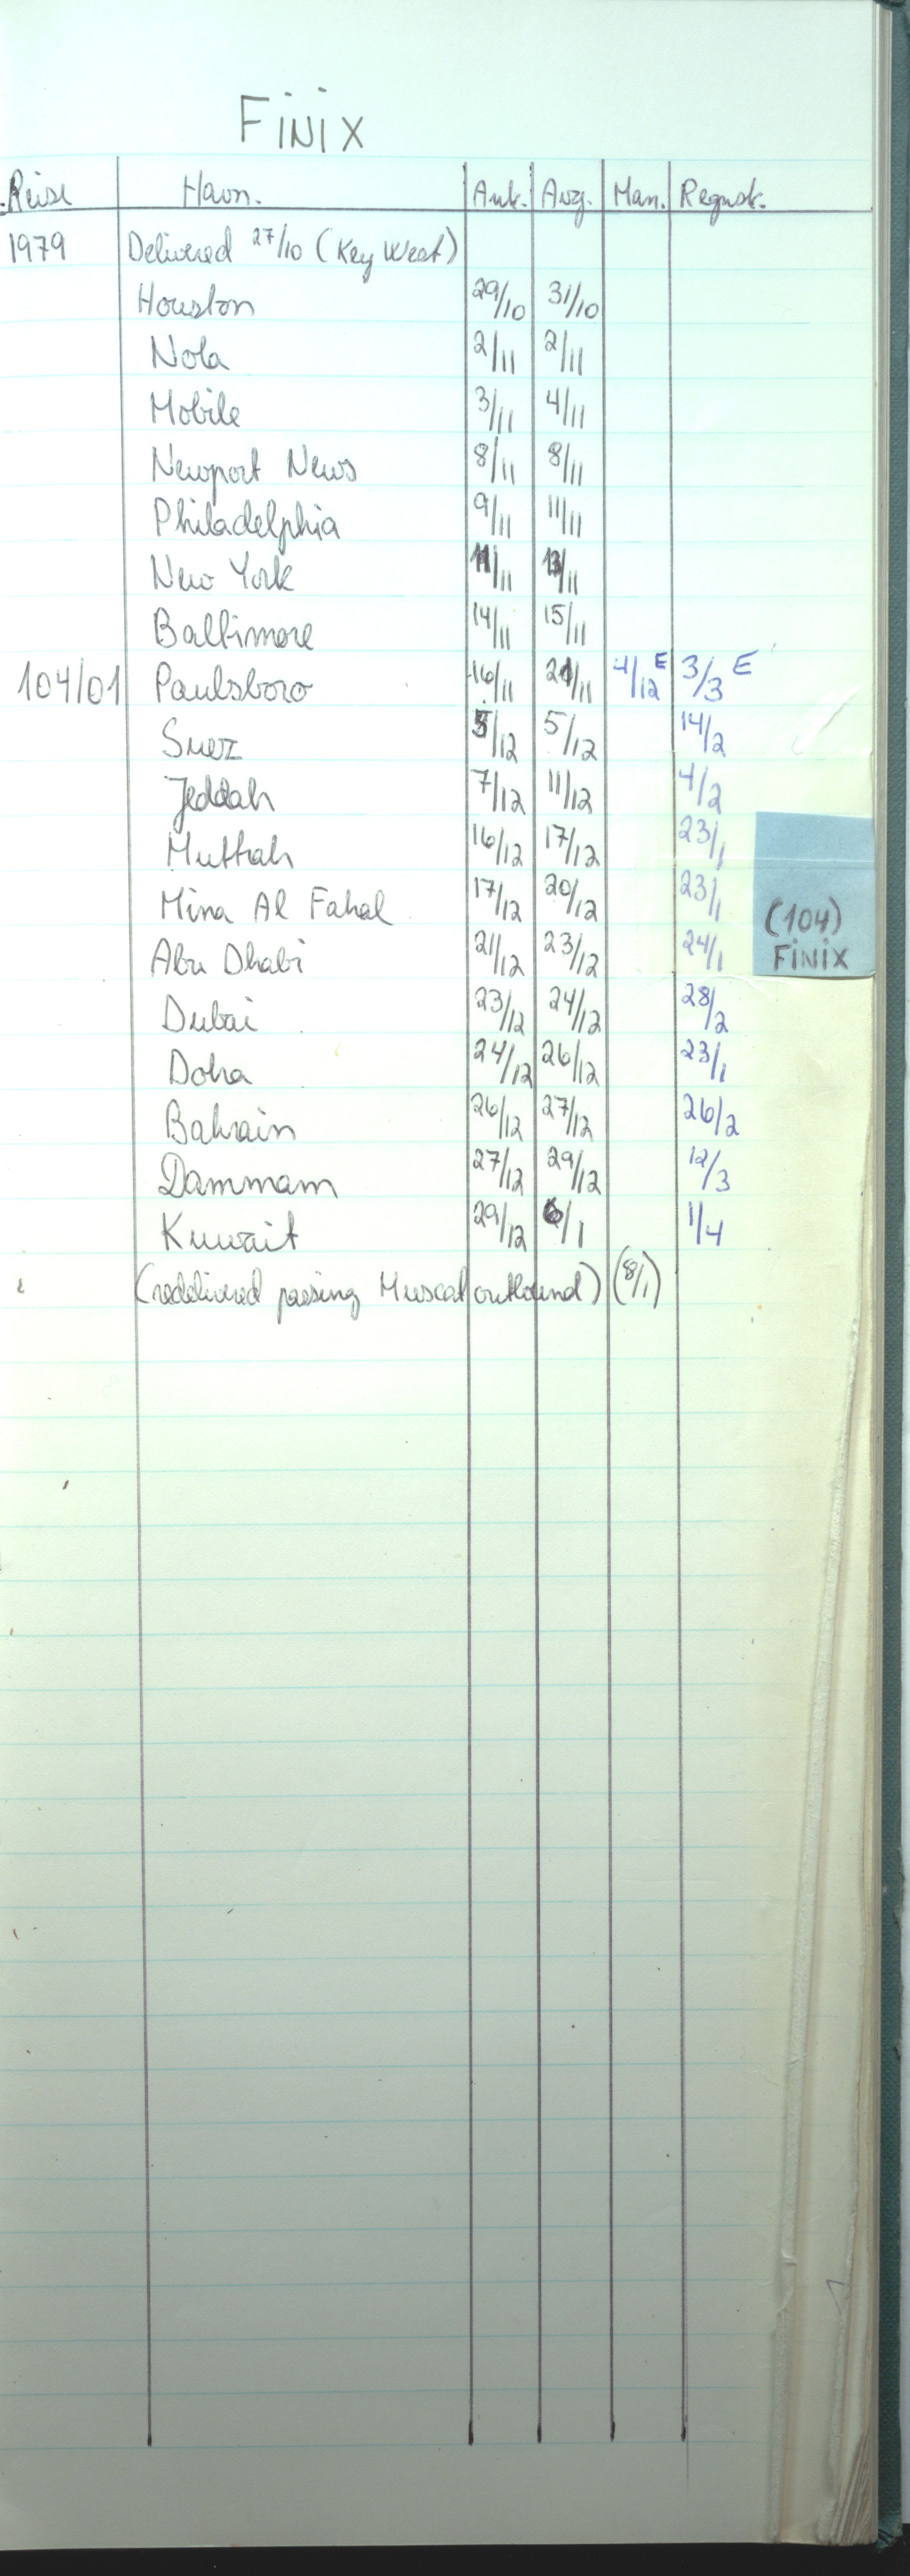 FiNiX
Reise Havn. Ank. Avg. Man. Regnsk.
1979 Delivered 27/10 (Key West)
Houston 29/10 31/10
Nola 2/11 2/11
Mobile 3/11 4/11
Newport News 8/11 8/11
Philadelphia 9/11 11/11
New York 11/11 13/11
Baltimore 14/11 15/11
104/01 Paulsboro 16/11 21/11 4/12 E 3/3 E
Suez 5/12 5/12 14/2
Jeddah 7/12 11/12 4/2
Muttrah 16/12 17/12 23/1
Mina Al Fahal 17/12 20/12 23/1
Abu Dhabi 21/12 23/12 24/1
Dubai 23/12 24/12 28/2
Doha 24/12 26/12 23/1
Bahrain 26/12 27/12 26/2
Dammam 27/12 29/12 12/3
Kuwait 29/12 6/1 1/4
(redelivered passing Muscat outbound) (8/1)
(104)
FiNiX